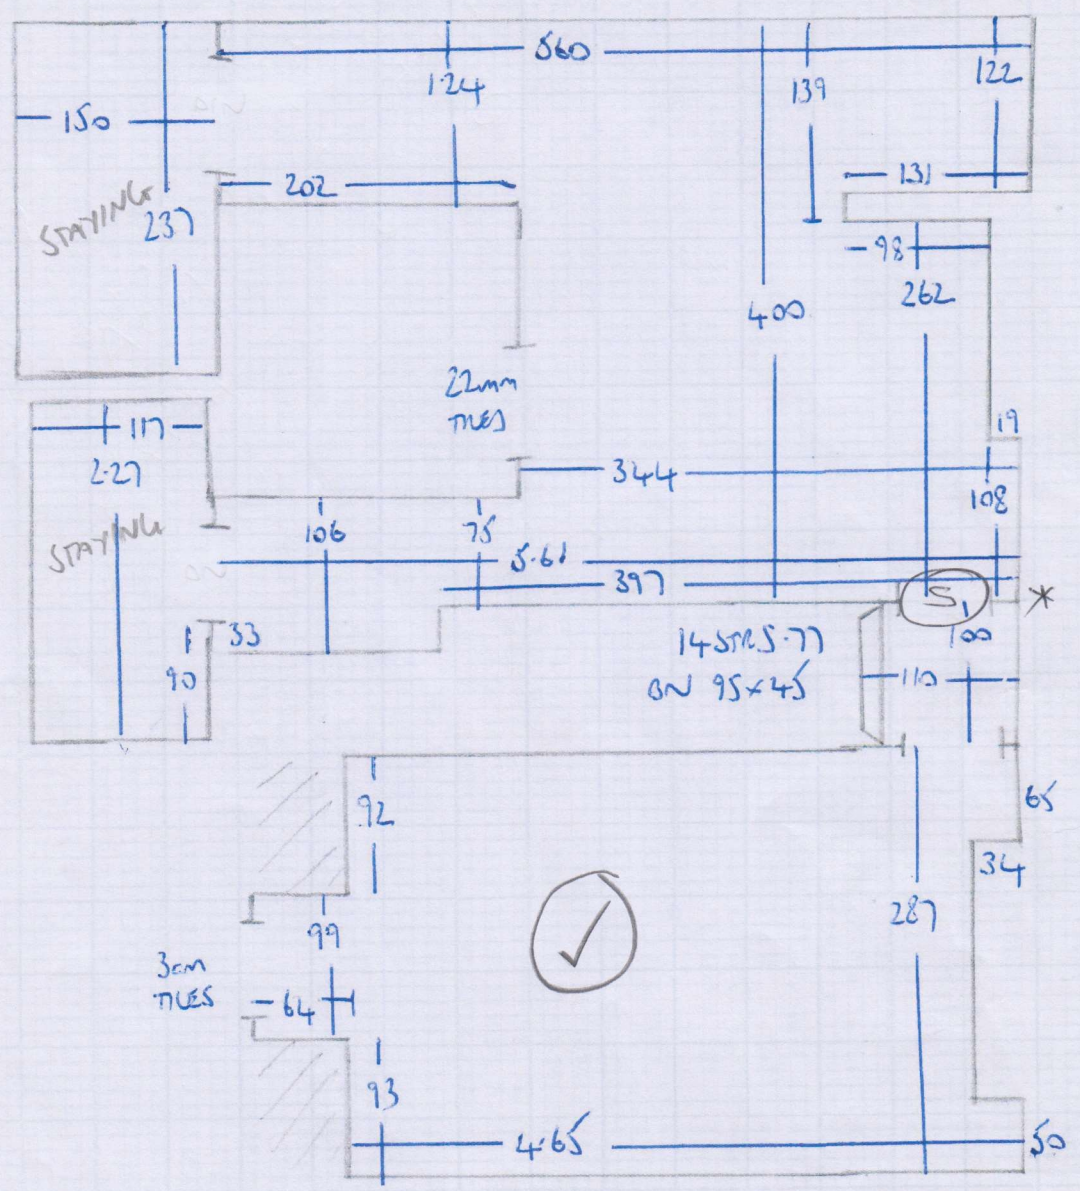 560
124
139
122
150
202
131
STAYING
237
98
262
400
22mm
TILES
19
117
344
2.27
108
STAYING
106
75
5.61
397
S
33
100
14 STRS .77
90
BN 95x45
110
65
92
34
287
99
3cm
TILES
64
93
4.65
50